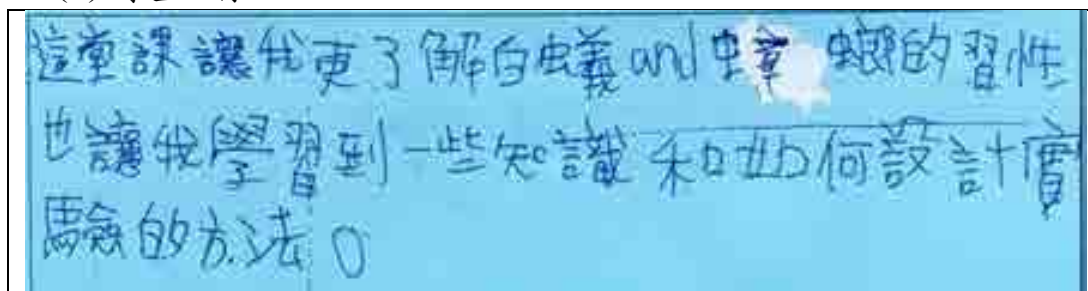 這堂課讓我更了解白蟻and蟑螂的習性
也讓我學習到一些知識和如何設計實
驗的方法。